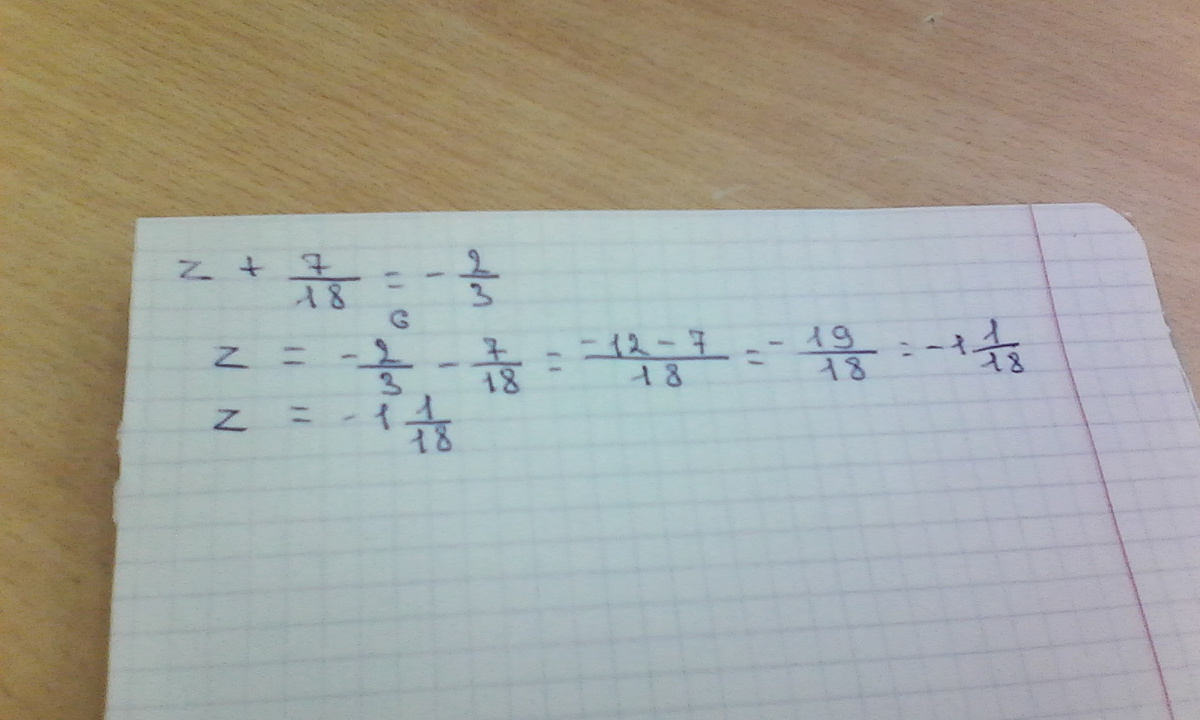 z + 7/18 = - 2/3
6
z = - 2/3 - 7/18 = -12-7/18 = - 19/18 = -1 1/18
z = -1 1/18